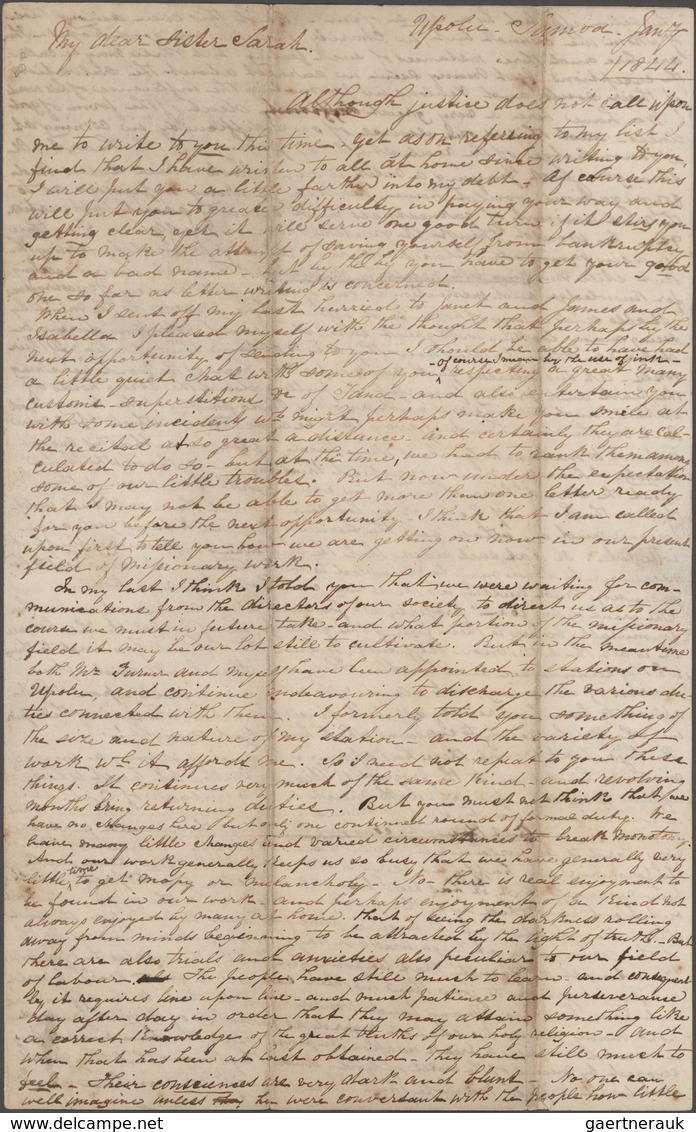 Upolu - Samoa - Jany
My dear Sister Sarah.
/1844.
Although justice does not call upon
me to write to you this time - yet as on referring to my list I
find that I have written to all at home since writing to you,
I will put you a little farther into my debt - Of course this
will put you to greater difficulty in paying your way and
getting clear, yet it will serve one good turn if it stirs you
up to make the attempt of saving yourself from bankruptcy
and a bad name - but by the by you have to get your good
one so far as letter writing is concerned.
When I sent off my last hurried to Janet and James and
Isabella I pleased myself with the thought that perhaps by the
next opportunity of sending to you I should be able to have had
a little quiet chat with some of you - of course I mean by the use of ink - respecting a great many
customs - superstitions &c of Tana - and also entertain you
with some incidents wh. might perhaps make you smile at
the recital at so great a distance - and certainly they are cal-
culated to do so - but at the time, we had to rank them among
some of our little troubles. But now under the expectation
that I may not be able to get more than one letter ready
for you before the next opportunity I think that I am called
upon first to tell you how we are getting on now in our present
field of missionary work.
In my last I think I told you that we were waiting for com-
munications from the directors of our society to direct us as to the
course we must in future take - and what portion of the missionary
field it may be our lot still to cultivate. But in the meantime
both Mr Turner and myself have been appointed to stations on
Upolu, and continue endeavouring to discharge the various du-
ties connected with them. I formerly told you something of
the size and nature of my station - and the variety of
work wh. it affords me. So I need not repeat to you these
things. It continues very much of the same kind - and revolving
months bring returning duties. But you must not think that we
have no changes here - but only one continued round of formal duty. We
have many little changes and varied circumstances to break monotony.
And our work generally keeps us so busy that we have generally very
little time to get mopy or melancholy - No - there is real enjoyment to
be found in our work - and perhaps enjoyment of a kind not
always enjoyed by many at home. that of seeing the darkness rolling
away from minds beginning to be attracted by the light of truth. - But
there are also trials and anxieties also peculiar to our field
of labour. The people have still much to learn - and consequent-
ly it requires line upon line - and much patience and perseverance
day after day in order that they may attain something like
a correct knowledge of the great truths of our holy religion - and
when that has been at last obtained - they have still much to
feel - Their consciences are very dark and blunt - No one can
well imagine unless he were conversant with the people how little
gaertnerauk
www.delcampe.net